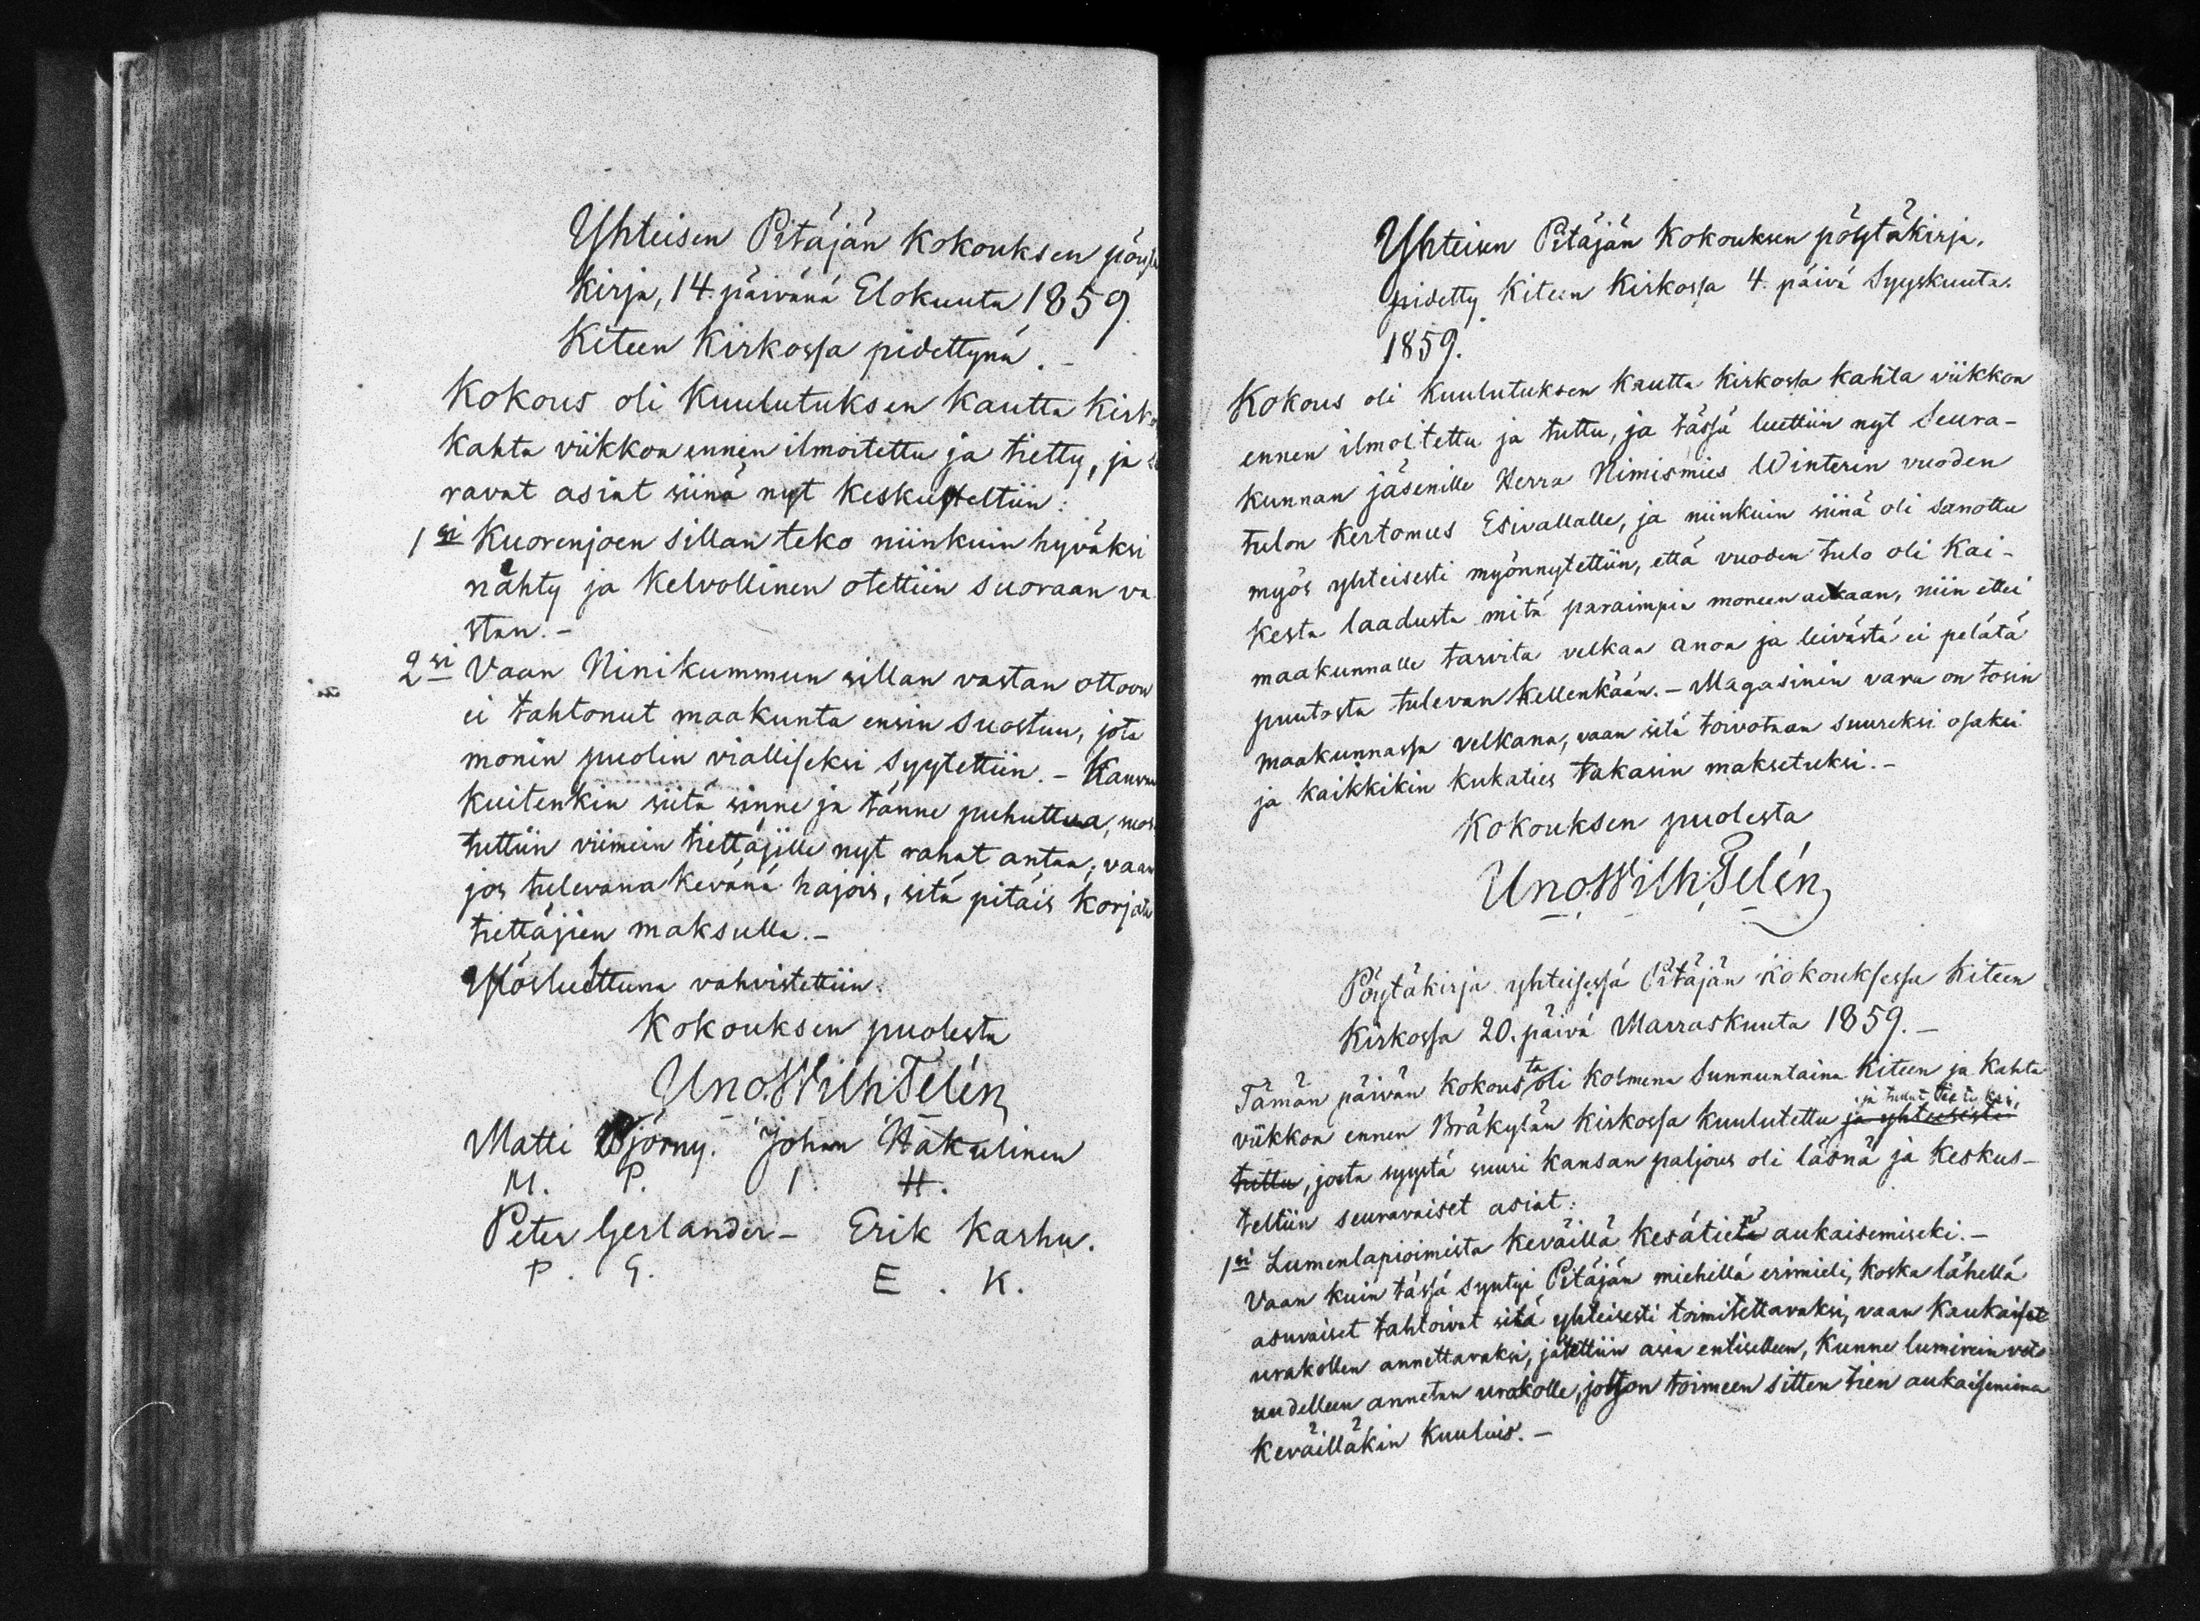 Yhteisen Pitäjän Kokouksen pöytä
kirja, 14. päivänä Elokuuta 1859.
Kiteen Kirkossa pidettynä. -
Kokous oli Kuulutuksen kautta Kirko
kahta viikkoa ennen ilmoitettu ja tietty, ja
ravat asiat siinä nyt keskusteltiin:
1si Kuorenjoen sillan teko niinkuin hyväksi
nähty ja Kelvollinen otettiin suoraan va
stan. -
2si Vaan Ninikummun sillan vastan ottoon
ei tahtonut maakunta ensin suostuu, jota
monin puolin vialliseksi syytettiin. - Kauvan
kuitenkin siitä sinne ja tänne puhuttua, suos
tuttiin viimein tiettäjille nyt rahat antaa; vaan
jos tulevana kevänä hajois, sitä pitäis korjata
tiettäjien maksulla. -
Ylösluettuna vahvistettiin.
Kokouksen puolesta
Uno Wilh: Telén
Matti Björny. Johan Hakulinen
M. P. I. H.
Peter Gerlander - Erik Karhu.
P. G. E. K.
Yhteisen Pitäjän Kokouksen pöytäkirja,
pidetty Kiteen Kirkossa 4. päivä Syyskuuta.
1859.
Kokous oli Kuulutuksen kautta kirkossa kahta viikkoa
ennen ilmoitettu ja tuttu, ja tässä luettiin nyt Seura-
kunnan jäsenille Herra Nimismies Winterin vuoden
tulon kertomus Esivallalle, ja niinkuin siinä oli sanottu
myös yhteisesti myönnytettiin, että vuoden tulo oli kai-
kesta laadusta mitä paraimpia moneen aikaan, niin ettei
maakunnalle tarvita velkaa anoa ja leivästä ei pelätä
puutosta tulevan kellenkään. - Magasinin vara on tosin
maakunnassa velkana, vaan sitä toivotaan suureksi osaksi
ja kaikkikin kukaties takasin maksetuksi. -
Kokouksen puolesta
Uno Wilh: Telén
Pöytäkirja yhteisessä Pitäjän Kokouksessa Kiteen
Kirkossa 20. päivä Marraskuuta 1859. -
Tämän päivän kokousta oli kolmena Sunnuntaina Kiteen ja kahta
viikkoa ennen Bräkylän kirkossa kuulutettu ja yhteisesti
tuttu, josta syystä suuri kansan paljous oli läsnä ja keskus-
teltiin seuravaiset asiat:
1si Lumenlapioimista keväillä kesätien aukaisemiseksi. -
Vaan kuin tässä syntyi Pitäjän miehillä erimieli, koska lähellä
asuvaiset tahtoivat sitä yhteisesti toimitettavaksi, vaan kaukaiset
urakollen annettavaksi, jätettiin asia entiselleen, kunne lumirein veto
uudelleen annetan urakolle, jolloin toimeen sitten tien aukaisemina
keväilläkin kuuluis. -